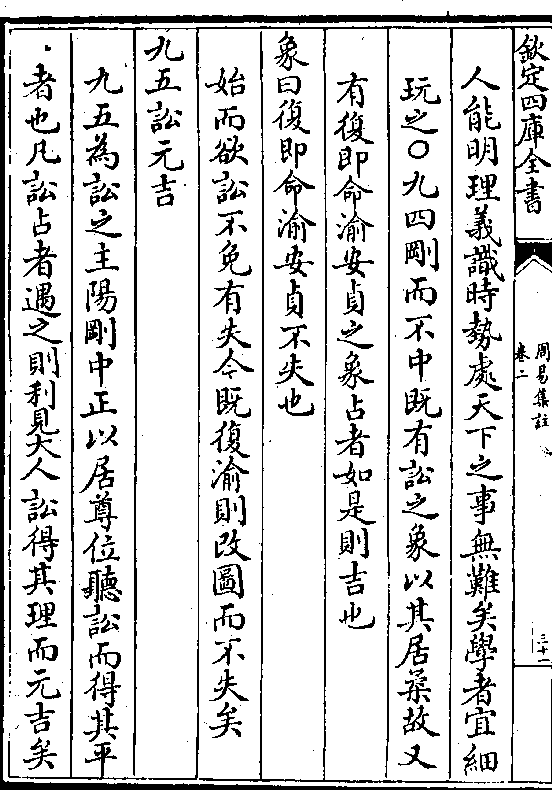 欽定四庫全書
周易集註
卷二
三十一
人能明理義識時勢處天下之事無難矣學者宜細
玩之〇九四剛而不中既有訟之象以其居柔故又
有復即命渝安貞之象占者如是則吉也
象曰復即命渝安貞不失也
始而欲訟不免有失今既復渝則改圖而不失矣
九五訟元吉
九五為訟之主陽剛中正以居尊位聽訟而得其平
者也凡訟占者遇之則利見大人訟得其理而元吉矣